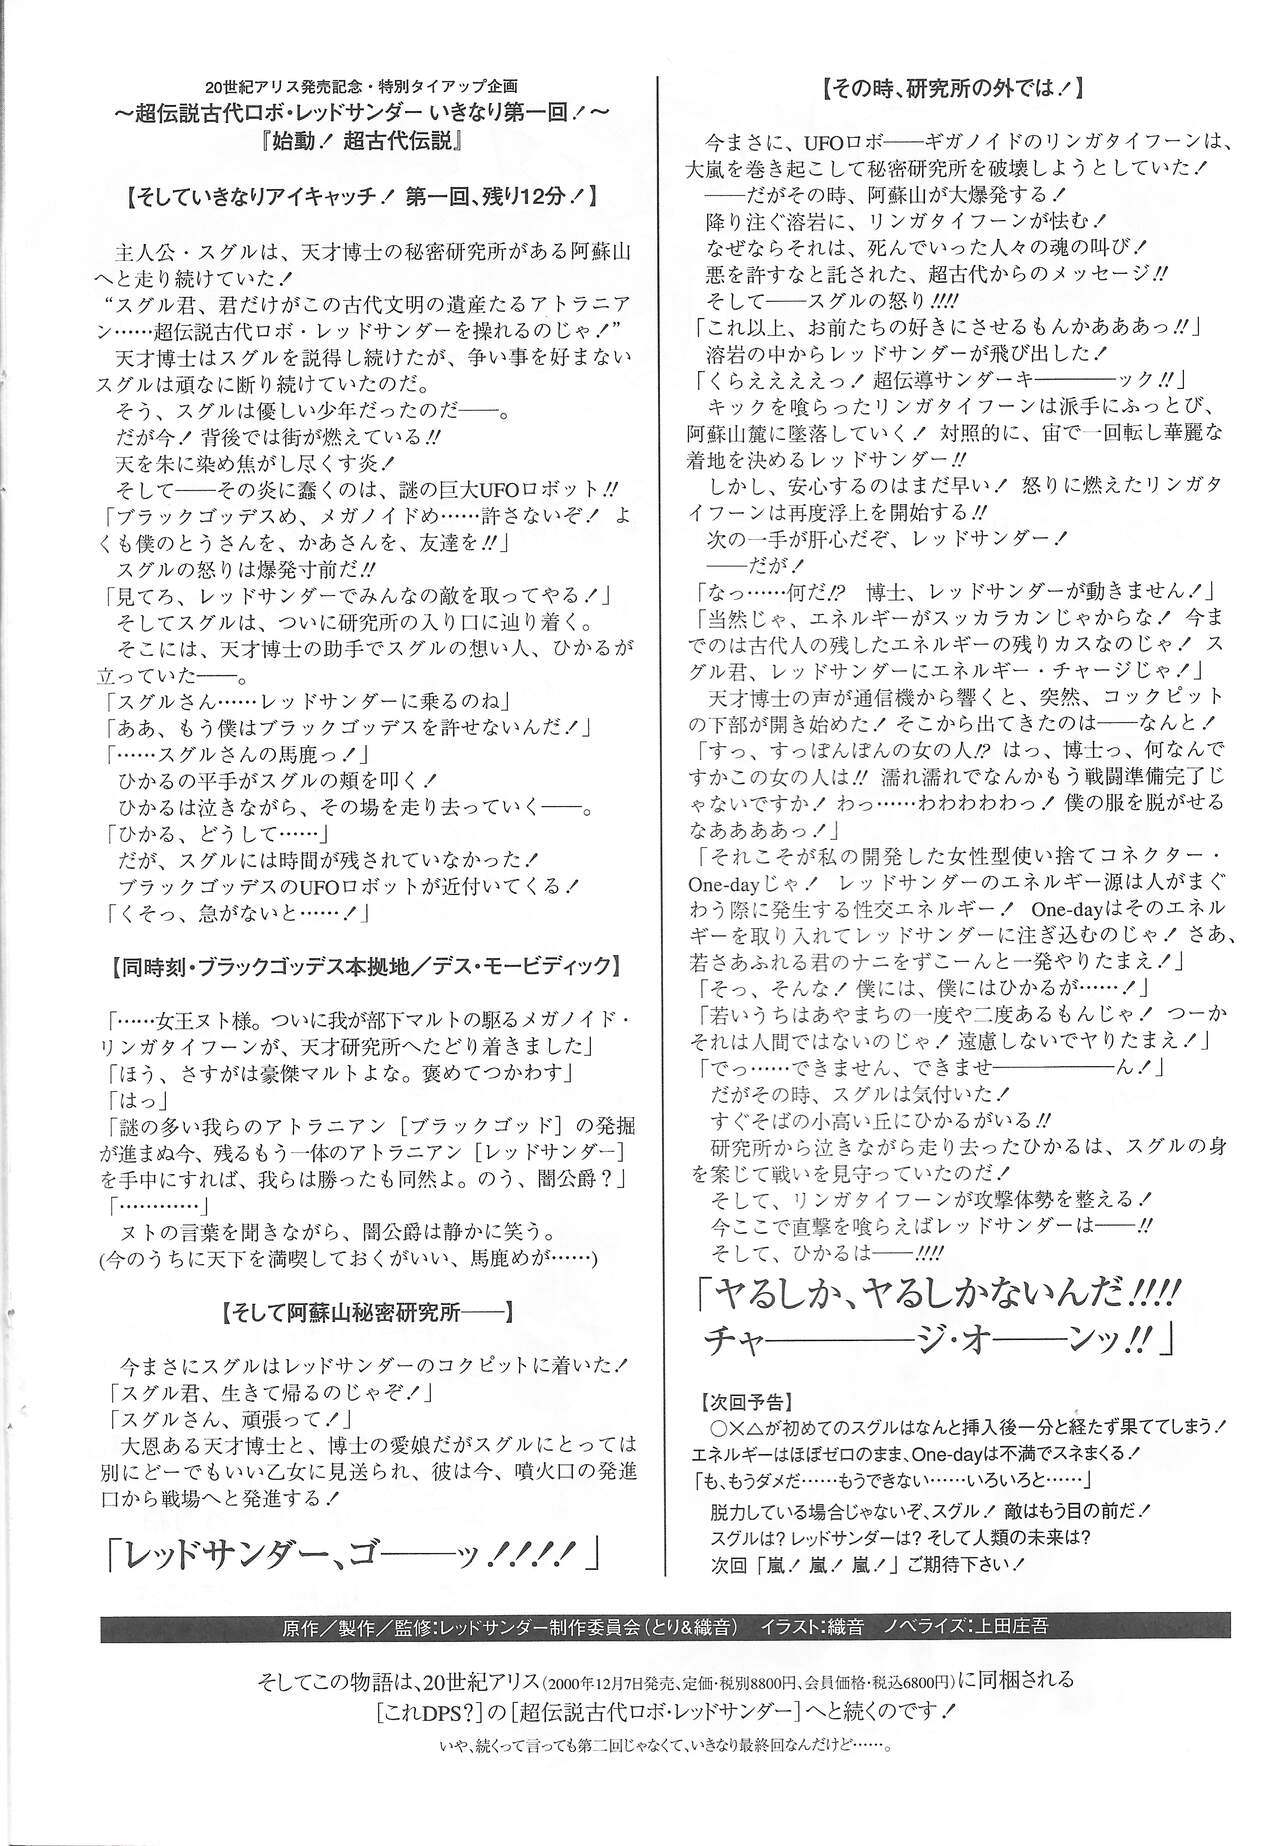 20世紀アリス発売記念・特別タイアップ企画
～超伝説古代ロボ・レッドサンダー いきなり第一回！～
『始動！ 超古代伝説』
【そしていきなりアイキャッチ！ 第一回、残り12分！】
主人公・スグルは、天才博士の秘密研究所がある阿蘇山
へと走り続けていた！
“スグル君、君だけがこの古代文明の遺産たるアトラニア
ン……超伝説古代ロボ・レッドサンダーを操れるのじゃ！”
天才博士はスグルを説得し続けたが、争い事を好まない
スグルは頑なに断り続けていたのだ。
そう、スグルは優しい少年だったのだ――。
だが今！ 背後では街が燃えている!!
天を朱に染め焦がし尽くす炎！
そして――その炎に蠢くのは、謎の巨大UFOロボット!!
「ブラックゴッデスめ、メガノイドめ……許さないぞ！ よ
くも僕のとうさんを、かあさんを、友達を!!」
スグルの怒りは爆発寸前だ!!
「見てろ、レッドサンダーでみんなの敵を取ってやる！」
そしてスグルは、ついに研究所の入り口に辿り着く。
そこには、天才博士の助手でスグルの想い人、ひかるが
立っていた――。
「スグルさん……レッドサンダーに乗るのね」
「ああ、もう僕はブラックゴッデスを許せないんだ！」
「……スグルさんの馬鹿っ！」
ひかるの平手がスグルの頬を叩く！
ひかるは泣きながら、その場を走り去っていく――。
「ひかる、どうして……」
だが、スグルには時間が残されていなかった！
ブラックゴッデスのUFOロボットが近付いてくる！
「くそっ、急がないと……！」
【同時刻・ブラックゴッデス本拠地／デス・モービディック】
「……女王ヌト様。ついに我が部下マルトの駆るメガノイド・
リンガタイフーンが、天才研究所へたどり着きました」
「ほう、さすがは豪傑マルトよな。褒めてつかわす」
「はっ」
「謎の多い我らのアトラニアン［ブラックゴッド］の発掘
が進まぬ今、残るもう一体のアトラニアン［レッドサンダー］
を手中にすれば、我らは勝ったも同然よ。のう、闇公爵？」
「…………」
ヌトの言葉を聞きながら、闇公爵は静かに笑う。
(今のうちに天下を満喫しておくがいい、馬鹿めが……)
【そして阿蘇山秘密研究所――】
今まさにスグルはレッドサンダーのコクピットに着いた！
「スグル君、生きて帰るのじゃぞ！」
「スグルさん、頑張って！」
大恩ある天才博士と、博士の愛娘だがスグルにとっては
別にどーでもいい乙女に見送られ、彼は今、噴火口の発進
口から戦場へと発進する！
「レッドサンダー、ゴ――ッ!!!!」
【その時、研究所の外では！】
今まさに、UFOロボ――ギガノイドのリンガタイフーンは、
大嵐を巻き起こして秘密研究所を破壊しようとしていた！
――だがその時、阿蘇山が大爆発する！
降り注ぐ溶岩に、リンガタイフーンが怯む！
なぜならそれは、死んでいった人々の魂の叫び！
悪を許すなと託された、超古代からのメッセージ!!
そして――スグルの怒り!!!!
「これ以上、お前たちの好きにさせるもんかあああっ!!」
溶岩の中からレッドサンダーが飛び出した！
「くらええええっ！ 超伝導サンダーキ――――ック!!」
キックを喰らったリンガタイフーンは派手にふっとび、
阿蘇山麓に墜落していく！ 対照的に、宙で一回転し華麗な
着地を決めるレッドサンダー!!
しかし、安心するのはまだ早い！ 怒りに燃えたリンガタ
イフーンは再度浮上を開始する!!
次の一手が肝心だぞ、レッドサンダー！
――だが！
「なっ……何だ!? 博士、レッドサンダーが動きません！」
「当然じゃ、エネルギーがスッカラカンじゃからな！ 今ま
でのは古代人の残したエネルギーの残りカスなのじゃ！ ス
グル君、レッドサンダーにエネルギー・チャージじゃ！」
天才博士の声が通信機から響くと、突然、コックピット
の下部が開き始めた！ そこから出てきたのは――なんと！
「すっ、すっぽんぽんの女の人!? はっ、博士っ、何なんで
すかこの女の人は!! 濡れ濡れでなんかもう戦闘準備完了じ
ゃないですか！ わっ……わわわわわっ！ 僕の服を脱がせる
なああああっ！」
「それこそが私の開発した女性型使い捨てコネクター・
One-dayじゃ！ レッドサンダーのエネルギー源は人がまぐ
わう際に発生する性交エネルギー！ One-dayはそのエネル
ギーを取り入れてレッドサンダーに注ぎ込むのじゃ！ さあ、
若さあふれる君のナニをずこーんと一発やりたまえ！」
「そっ、そんな！ 僕には、僕にはひかるが……！」
「若いうちはあやまちの一度や二度あるもんじゃ！ つーか
それは人間ではないのじゃ！ 遠慮しないでヤりたまえ！」
「でっ……できません、できませ――――――ん！」
だがその時、スグルは気付いた！
すぐそばの小高い丘にひかるがいる!!
研究所から泣きながら走り去ったひかるは、スグルの身
を案じて戦いを見守っていたのだ！
そして、リンガタイフーンが攻撃体勢を整える！
今ここで直撃を喰らえばレッドサンダーは――!!
そして、ひかるは――!!!!
「ヤるしか、ヤるしかないんだ!!!!
チャ――――ジ・オ――ンッ!!」
【次回予告】
○×△が初めてのスグルはなんと挿入後一分と経たず果ててしまう！
エネルギーはほぼゼロのまま、One-dayは不満でスネまくる！
「も、もうダメだ……もうできない……いろいろと……」
脱力している場合じゃないぞ、スグル！ 敵はもう目の前だ！
スグルは？ レッドサンダーは？ そして人類の未来は？
次回「嵐！ 嵐！ 嵐！」ご期待下さい！
原作／製作／監修：レッドサンダー制作委員会（とり＆織音） イラスト：織音 ノベライズ：上田庄吾
そしてこの物語は、20世紀アリス（2000年12月7日発売、定価・税別8800円、会員価格・税込6800円）に同梱される
［これDPS？］の［超伝説古代ロボ・レッドサンダー］へと続くのです！
いや、続くって言っても第二回じゃなくて、いきなり最終回なんだけど……。